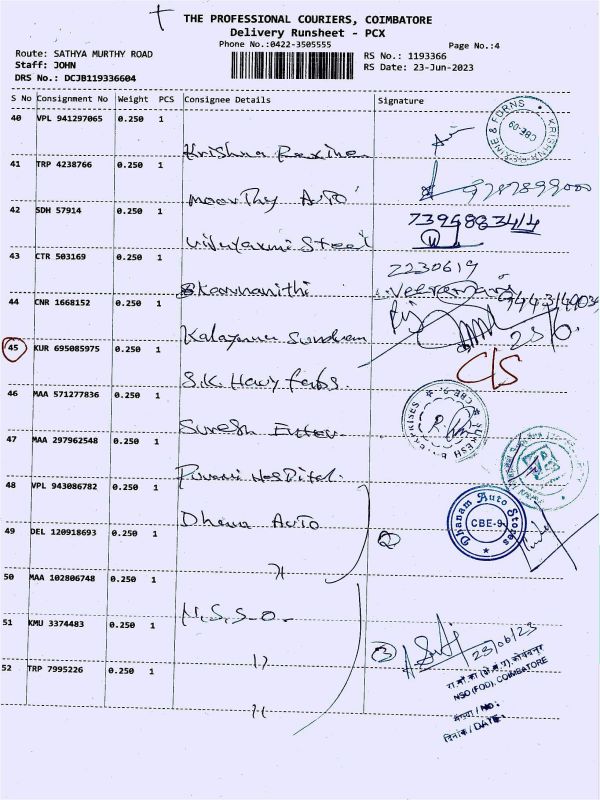 THE PROFESSIONAL COURIERS, COIMBATORE
Delivery Runsheet - PCX
Phone No.:0422-3505555
Page No.:4
Route: SATHYA MURTHY ROAD
Staff: JOHN
DRS No.: DCJB119336604
RS No.: 1193366
RS Date: 23-Jun-2023
S No Consignment No Weight PCS Consignee Details Signature
40 VPL 941297065 0.250 1
Krishna Rexine
KRISHNA REXINE & FORNS
CBE-09
41 TRP 4238766 0.250 1
Moorthy Auto
42 SDH 57914 0.250 1
Vijayaxmi Steel
43 CTR 503169 0.250 1
2230619
Kannanithi
44 CNR 1668152 0.250 1
Kalayana Sundram
45 KUR 695085975 0.250 1
C/S
S.K. Havy fabs.
46 MAA 571277836 0.250 1
Suresh Enter.
47 MAA 297962548 0.250 1
Hospital.
48 VPL 943086782 0.250 1
Dhana Auto
Dhanam Auto Stores
CBE-9
49 DEL 120918693 0.250 1
②
50 MAA 102806748 0.250 1
N.S.S.O.
51 KMU 3374483 0.250 1
③
23/06/23
52 TRP 7995226 0.250 1
NSO (FOD), COIMBATORE
संख्या / No:
दिनांक / DATE: